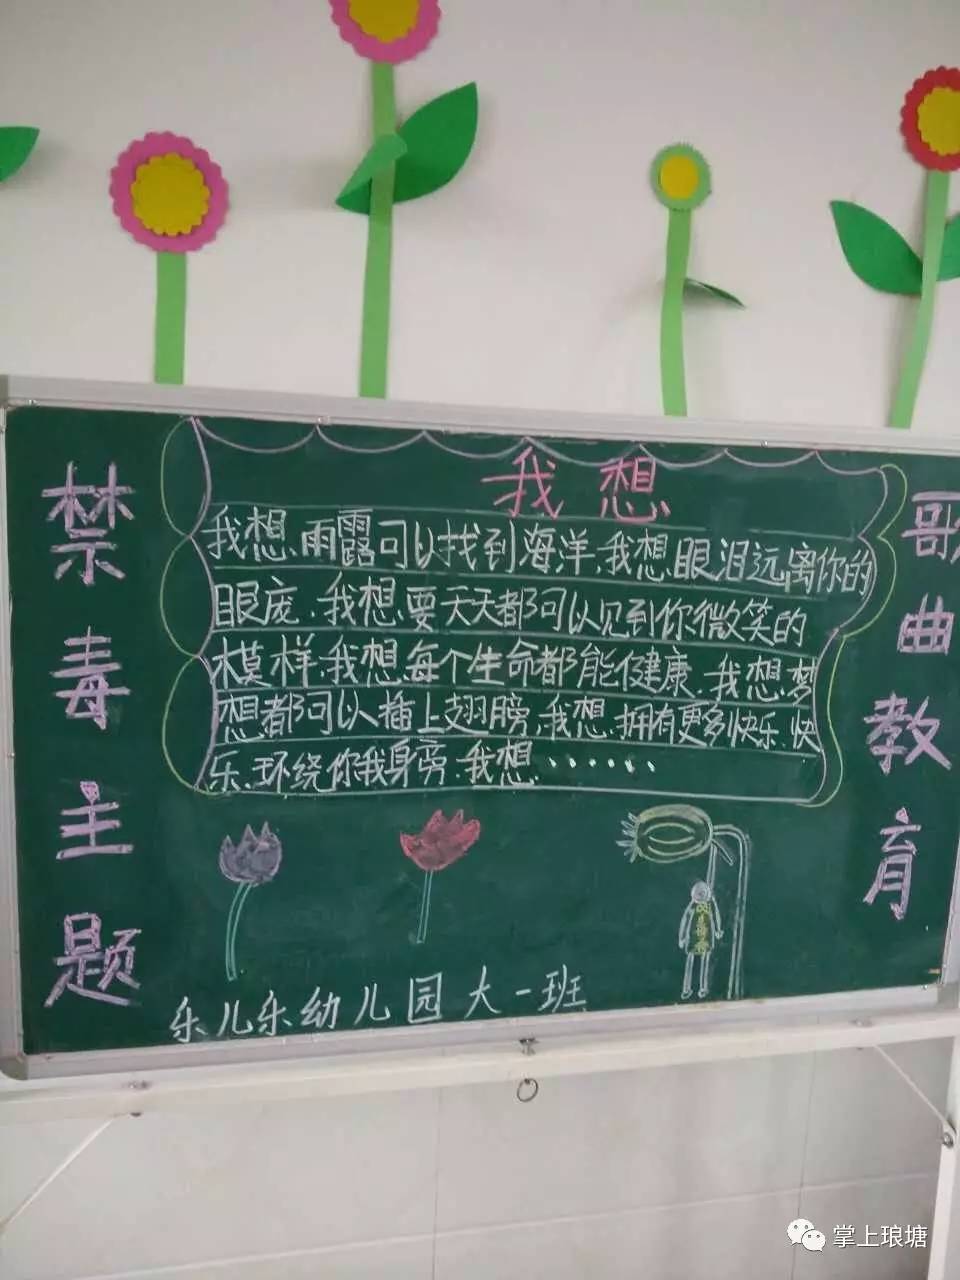 禁毒主题
我想
我想、雨露可以找到海洋、我想、眼泪远离你的
眼庞、我想、要天天都可以见到你微笑的
模样、我想、每个生命都能健康、我想、梦
想都可以插上翅膀、我想、拥有更多快乐、快
乐、环绕你我身旁、我想、……
歌曲教育
乐儿乐幼儿园大一班
掌上琅塘